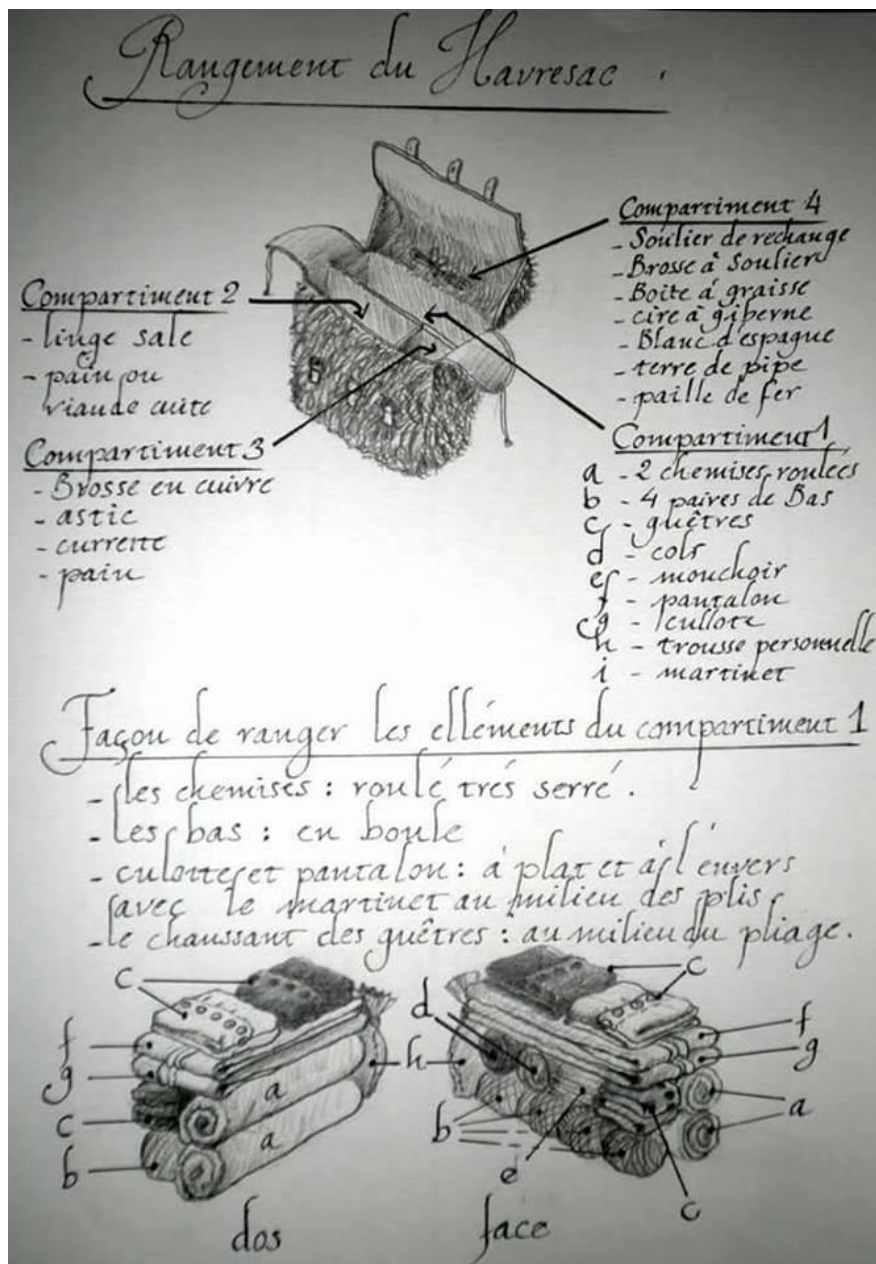 Rangement du Havresac.
Compartiment 2
- linge sale
- pain ou
viande cuite
Compartiment 3
- Brosse en cuivre
- astic
- currette
- pain
Compartiment 4
- Soulier de rechange
- Brosse à Soulier
- Boite à graisse
- cire à giberne
- Blanc d'espagne
- terre de pipe
- paille de fer
Compartiment 1
a - 2 chemises roulées
b - 4 paires de Bas
c - guêtres
d - cols
e - mouchoir
f - pantalon
g - cullote
h - trousse personnelle
i - martinet
Façon de ranger les élléments du compartiment 1
- les chemises : roulé trés serré.
- les bas : en boule
- culotte et pantalon : à plat et à l'envers
avec le martinet au milieu des plis
- le chaussant des guêtres : au milieu du pliage.
c
f
g
c
b
a
a
h
dos
d
b
e
c
f
g
a
c
face